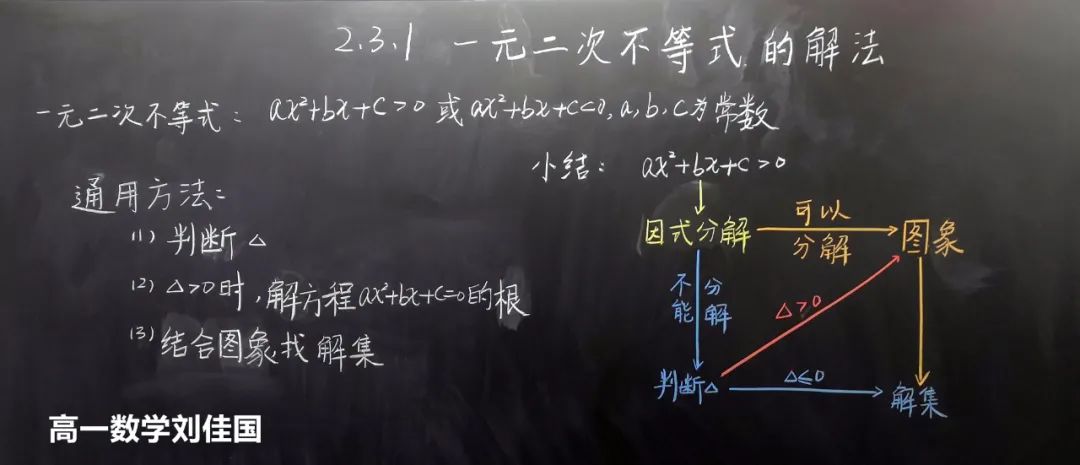 2.3.1 一元二次不等式的解法
一元二次不等式: ax²+bx+c>0 或 ax²+bx+c<0, a, b, c为常数
通用方法:
(1) 判断△
(2) △>0时,解方程ax²+bx+c=0的根
(3) 结合图象找解集
小结: ax²+bx+c>0
因式分解
可以
分解
图象
不能
分解
△>0
判断△
△≤0
解集
高一数学刘佳国